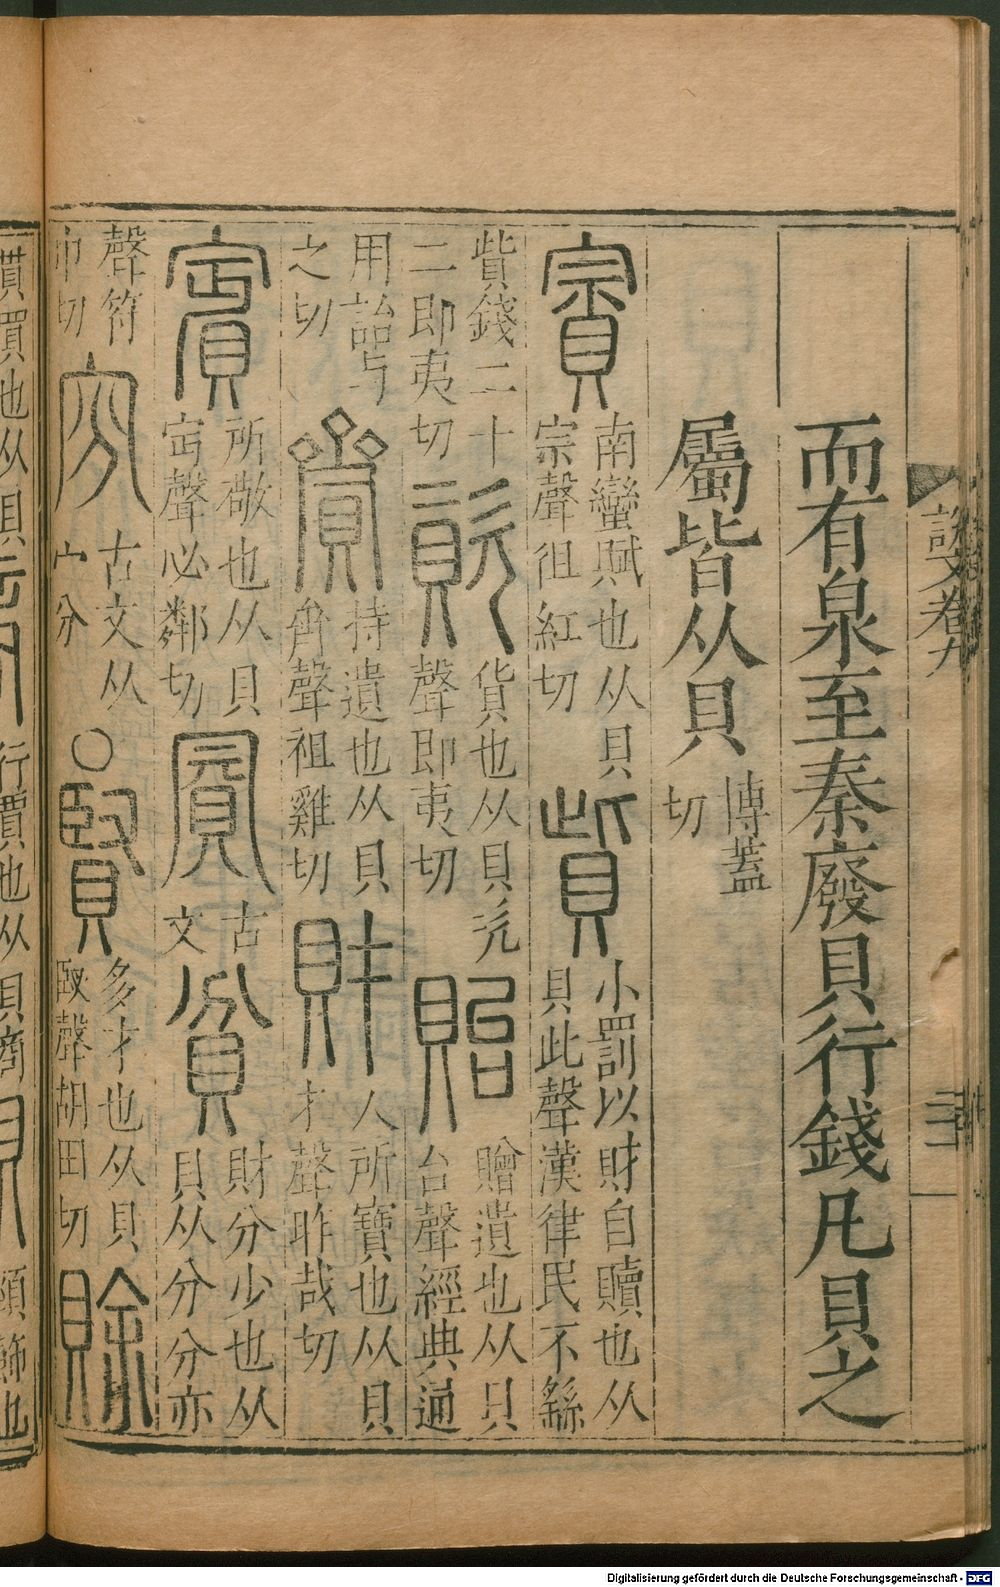 說文卷九
三
而有泉至秦廢貝行錢凡貝之
屬皆从貝
博蓋
切
賨
南蠻賦也从貝
宗聲徂紅切
貲
小罰以財自贖也从
貝此聲漢律民不繇
貲錢二十
二即夷切
貨也从貝次
聲即夷切
貽
贈遺也从貝
台聲經典通
用詒与
之切
持遺也从貝
聲祖雞切
財
人所寶也从貝
才聲昨哉切
賓
所敬也从貝
聲必鄰切
古
文
貧
財分少也从
貝从分分亦
聲符
巾切
古文从
宀分
○
賢
多才也从貝
臤聲胡田切
賖
行賈也从貝商
頸飾也
Digitalisierung gefördert durch die Deutsche Forschungsgemeinschaft - DFG